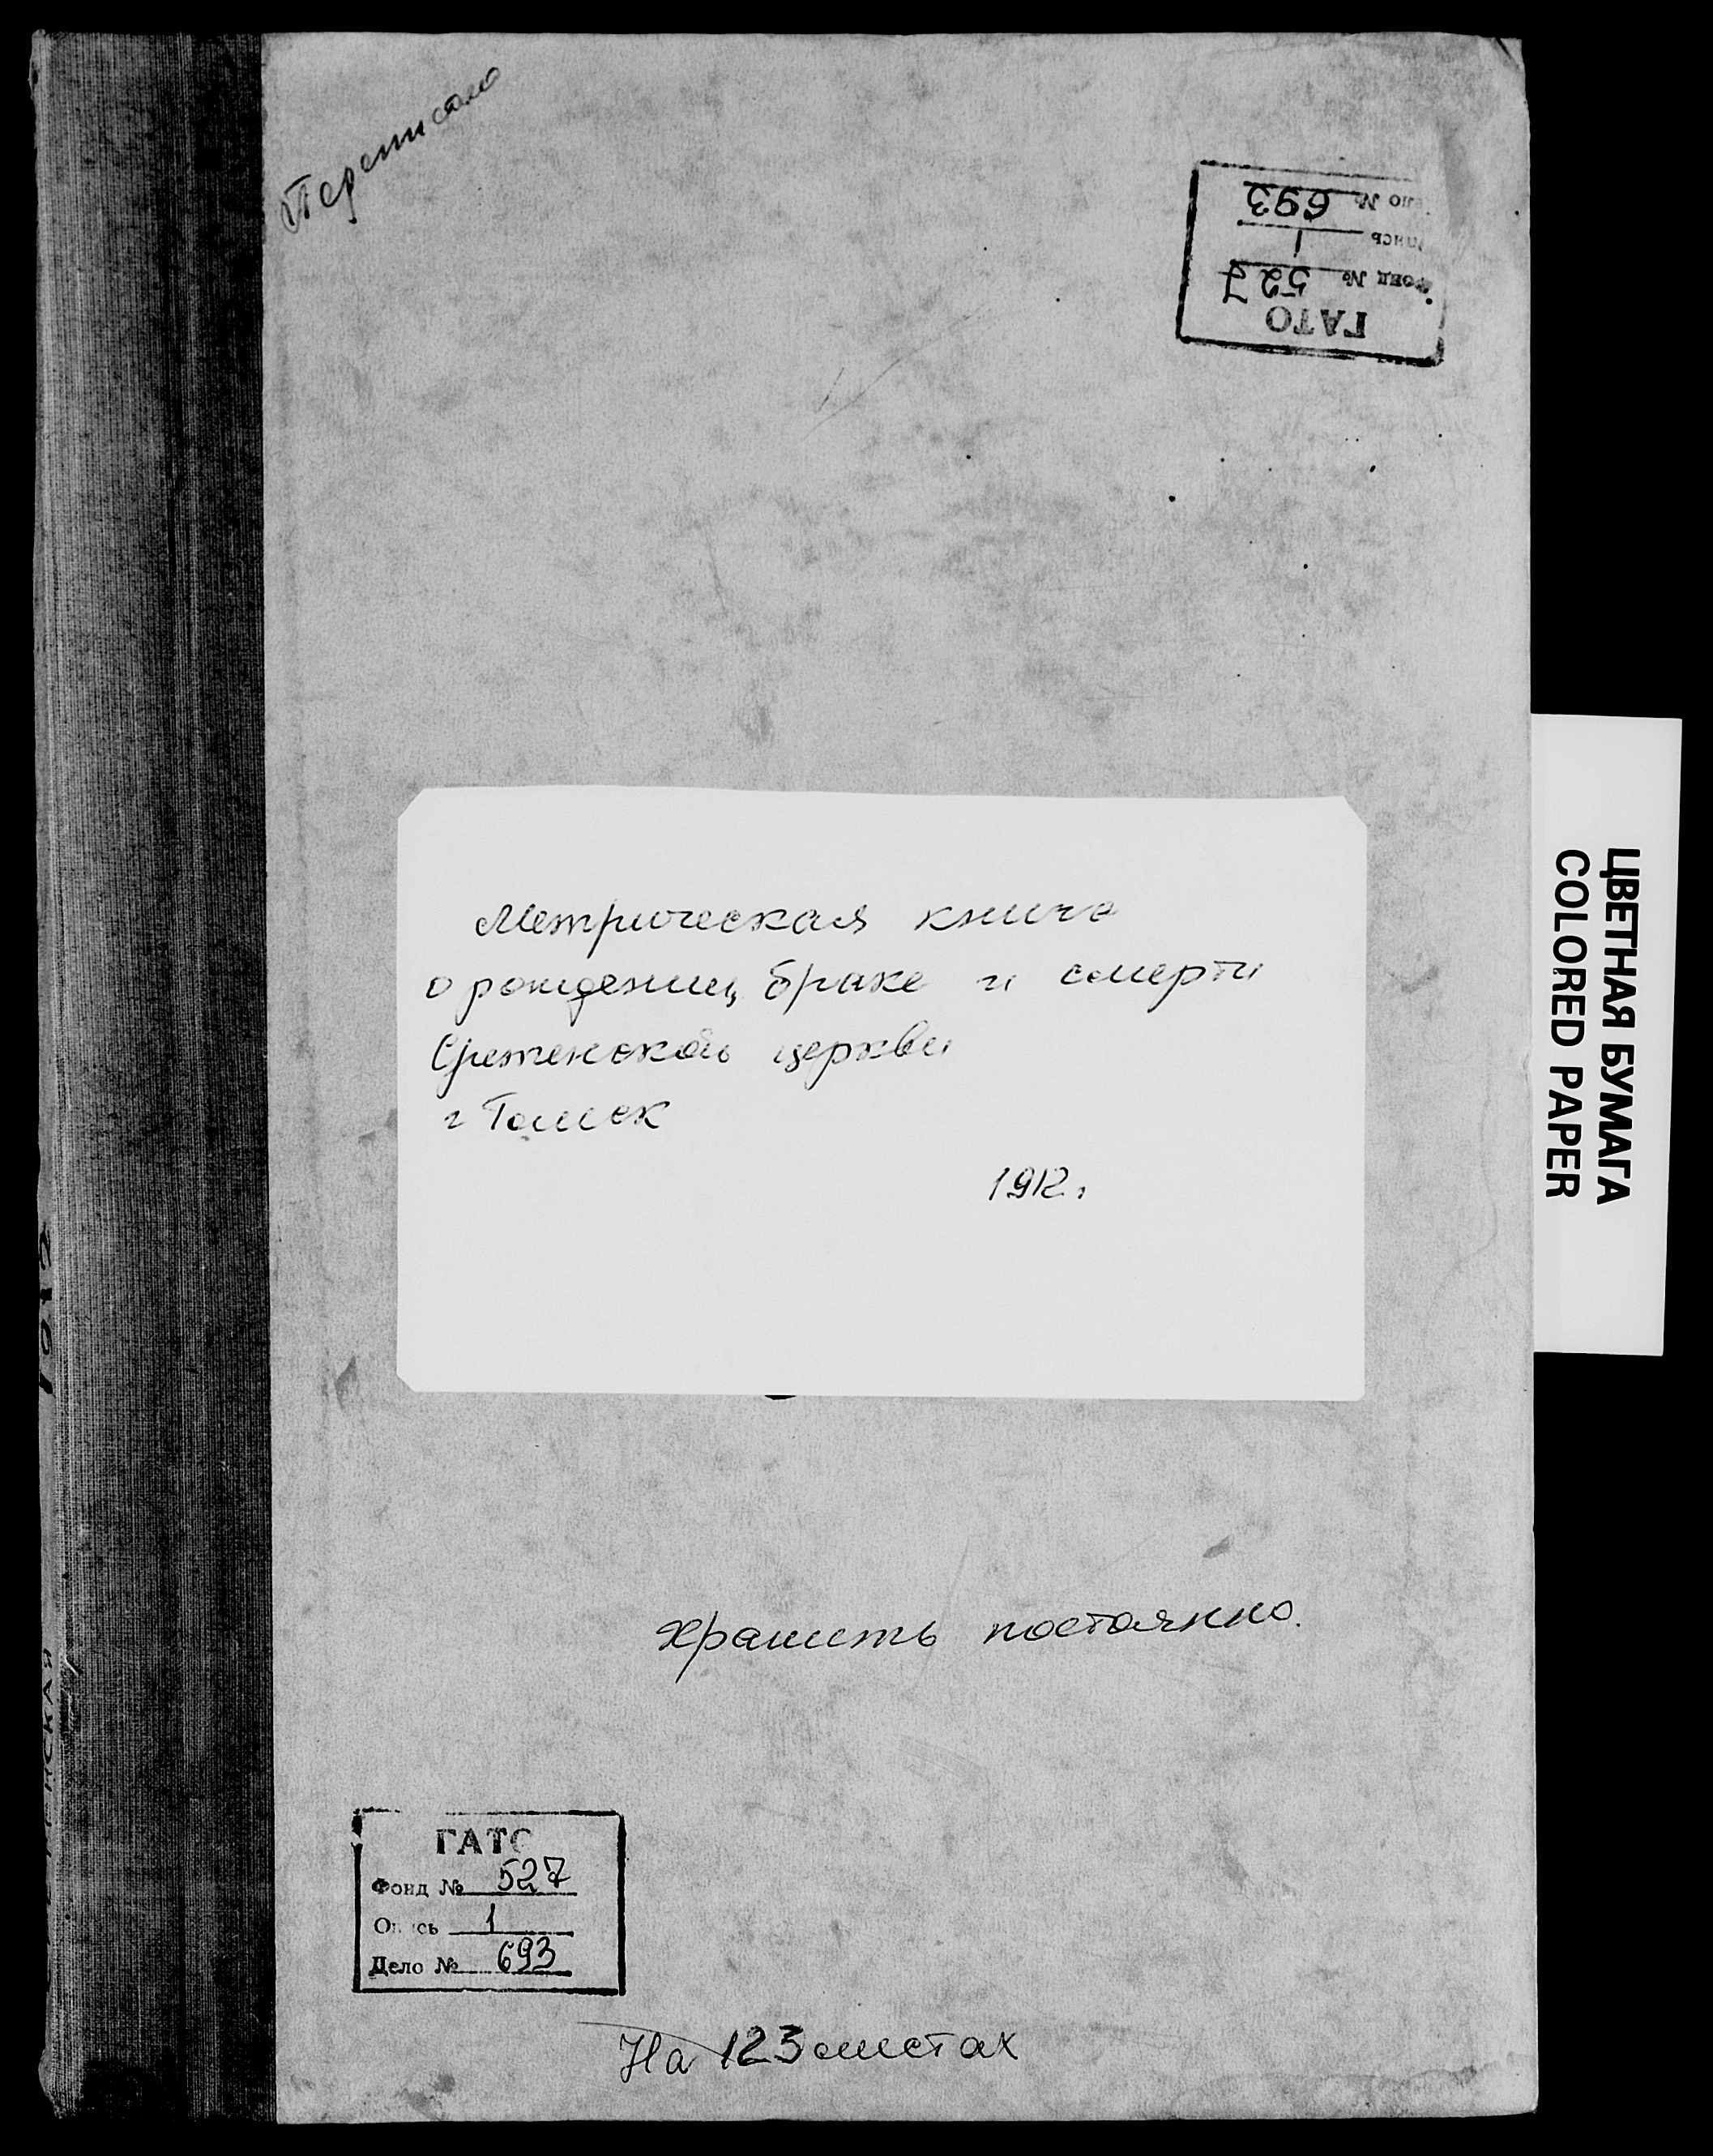 Переписано
ГАТО
Фонд № 527
Опись 1
Дело № 693
Метрическая книга
о рождении, браке и смерти
Сретенской церкви
г Томск
1912.
ЦВЕТНАЯ БУМАГА
COLORED PAPER
хранить постоянно.
ГАТО
Фонд № 527
Опись 1
Дело № 693
На 123 листах
1912